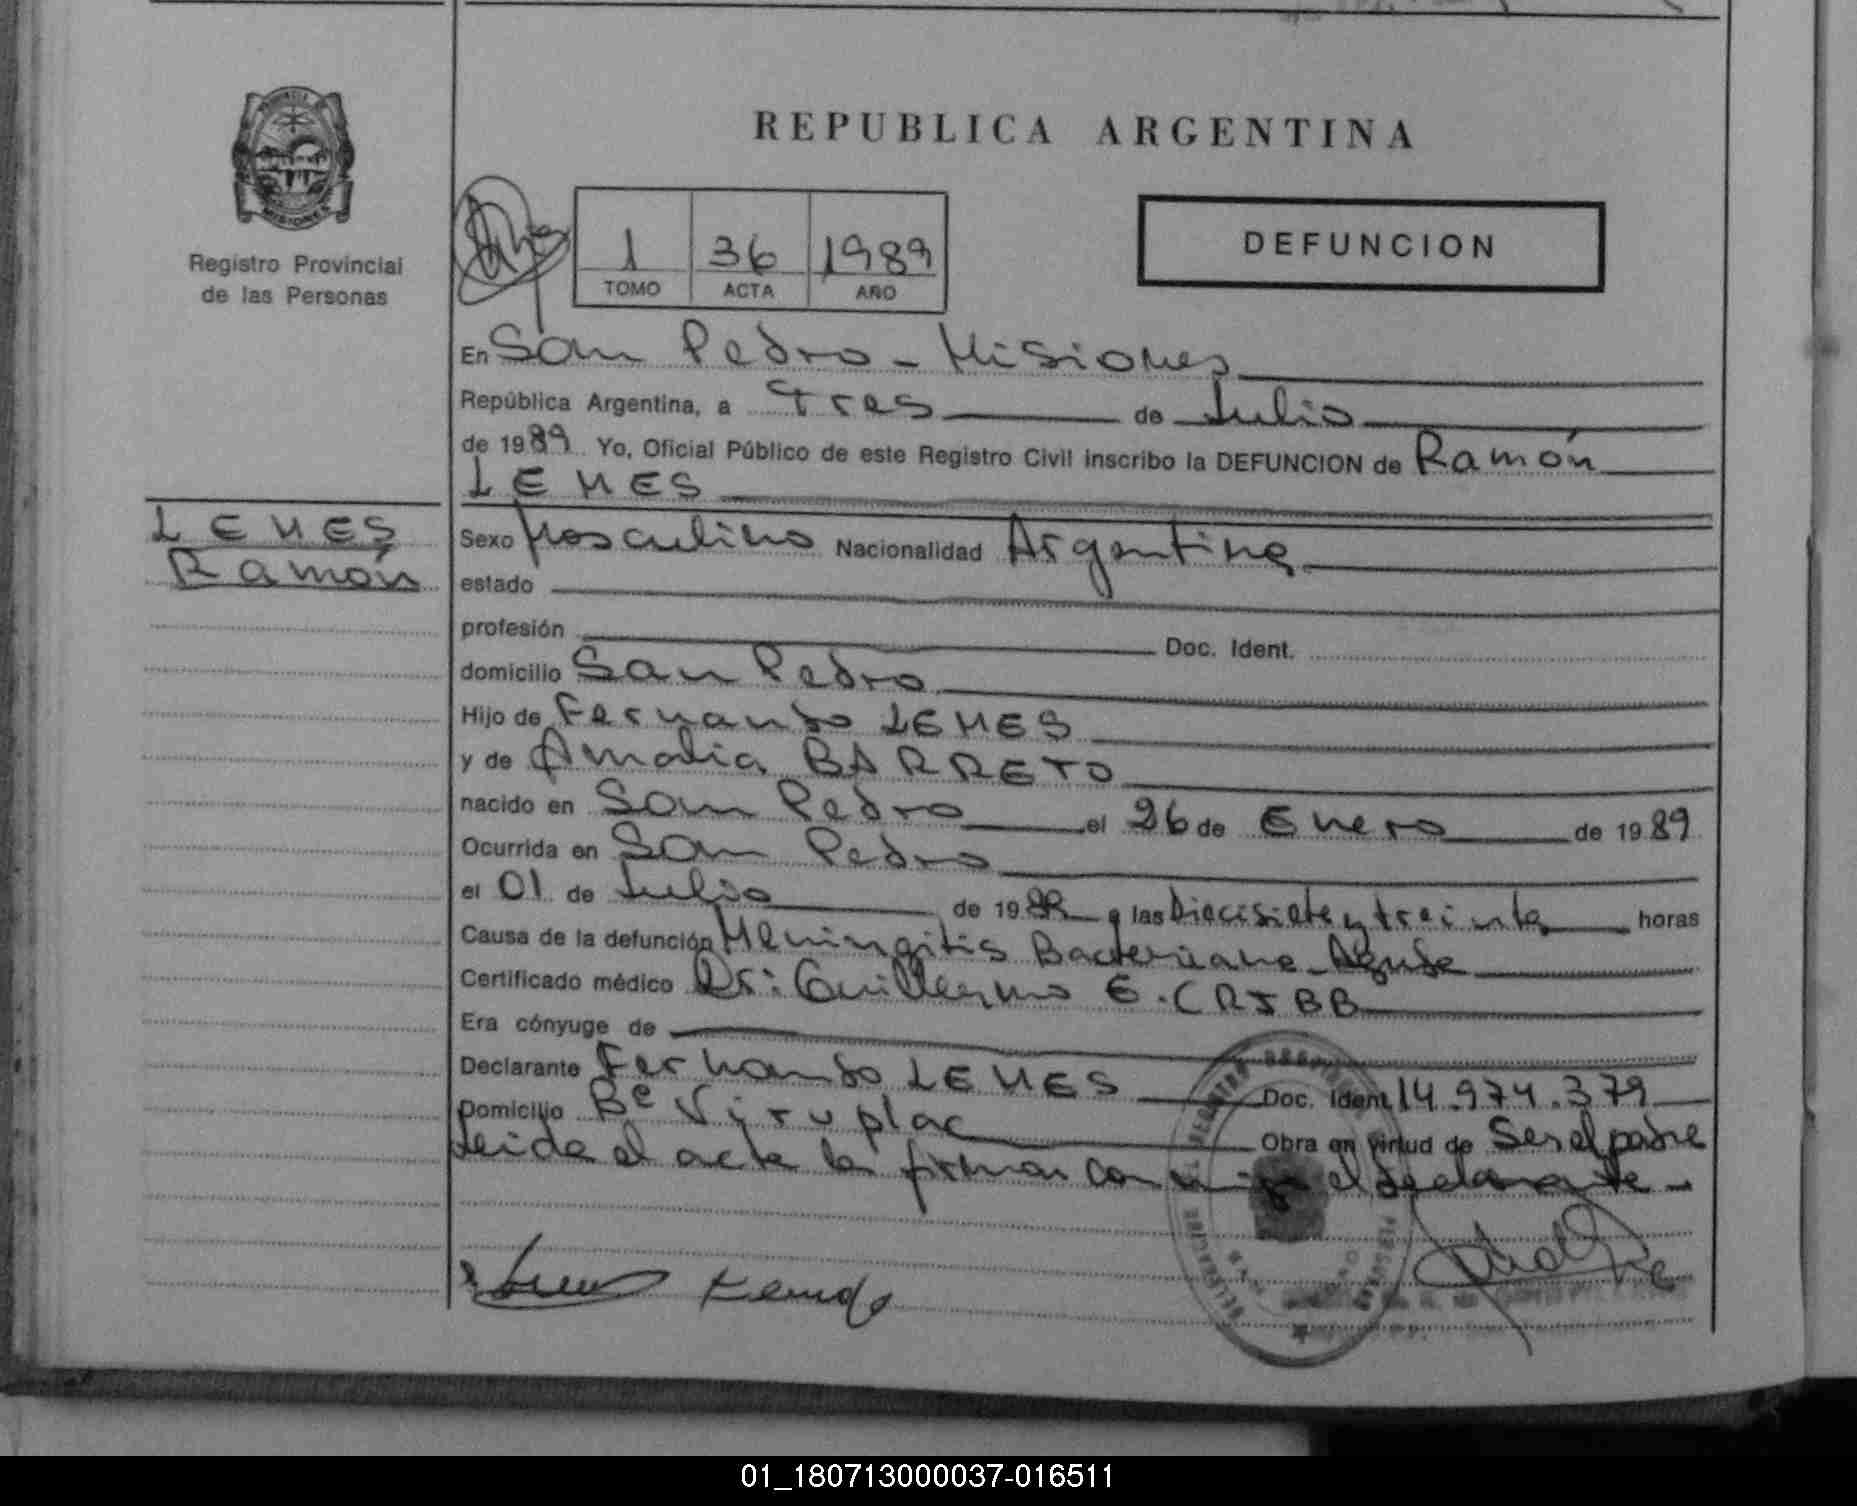 REPUBLICA ARGENTINA
PROVINCIA
MISIONES
Registro Provincial
de las Personas
1 36 1989
TOMO ACTA AÑO
DEFUNCION
En San Pedro - Misiones
República Argentina, a tres de Julio
de 1989. Yo, Oficial Público de este Registro Civil inscribo la DEFUNCION de Ramón
LEMES
LEMES
Ramón
Sexo Masculino Nacionalidad Argentina
estado
profesión Doc. Ident.
domicilio San Pedro
Hijo de Fernando LEMES
y de Amalia BARRETO
nacido en San Pedro el 26 de Enero de 1989
Ocurrida en San Pedro
el 01 de Julio de 1989 a las Diecisiete y treinta horas
Causa de la defunción Meningitis Bacteriana - Aguda
Certificado médico Dr: Guillermo E. CRIBB
Era cónyuge de
Declarante Fernando LEMES Doc. Ident. 14.974.379
Domicilio Bº Viruplac Obra en virtud de Ser el padre
Leida el acta la firman conmigo el declarante -
01_180713000037-016511